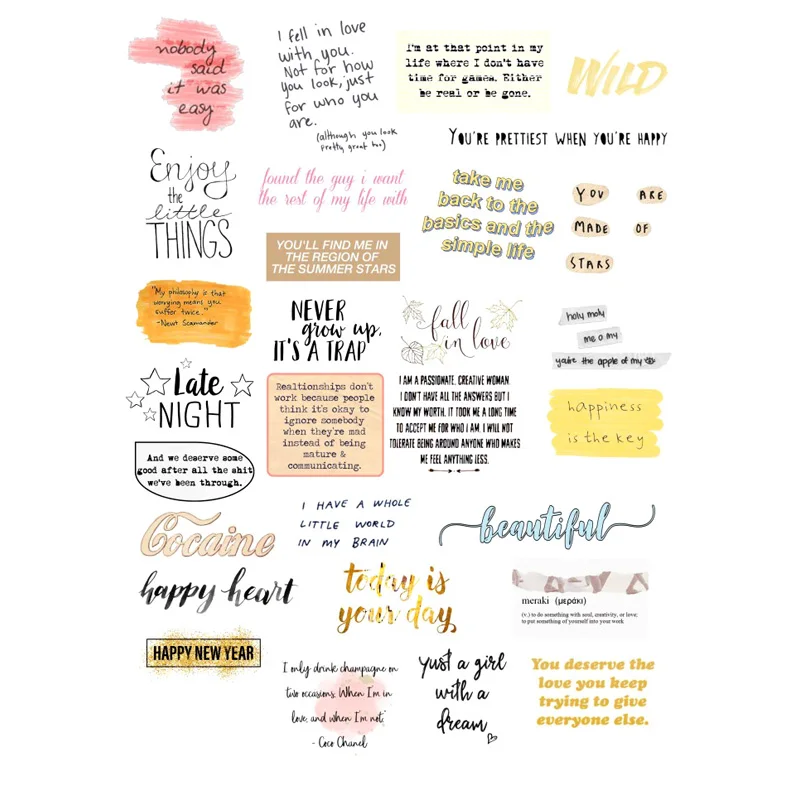 nobody
said
it was
easy
I fell in love
with you.
Not for how
you look, just
for who you
are.
(although you look
pretty great too)
I'm at that point in my
life where I don't have
time for games. Either
be real or be gone.
WILD
YOU'RE PRETTIEST WHEN YOU'RE HAPPY
Enjoy
the
little
THINGS
found the guy i want
the rest of my life with
take me
back to the
basics and the
simple life
YOU ARE
MADE OF
STARS
YOU'LL FIND ME IN
THE REGION OF
THE SUMMER STARS
"My philosophy is that
worrying means you
suffer twice."
-Newt Scamander
NEVER
grow up,
IT'S A TRAP
fall
in love
holy moly
me o my
you're the apple of my
Late
NIGHT
Realtionships don't
work because people
think it's okay to
ignore somebody
when they're mad
instead of being
mature &
communicating.
I AM A PASSIONATE, CREATIVE WOMAN.
I DON'T HAVE ALL THE ANSWERS BUT I
KNOW MY WORTH. IT TOOK ME A LONG TIME
TO ACCEPT ME FOR WHO I AM. I WILL NOT
TOLERATE BEING AROUND ANYONE WHO MAKES
ME FEEL ANYTHING LESS.
happiness
is the key
And we deserve some
good after all the shit
we've been through.
I HAVE A WHOLE
LITTLE WORLD
IN MY BRAIN
beautiful
Cocaine
happy heart
today is
your day
meraki (μεράκι)
(v.) to do something with soul, creativity, or love;
to put something of yourself into your work
HAPPY NEW YEAR
I only drink champagne on
two occasions. When I'm in
love, and when I'm not.
- Coco Chanel
just a girl
with a
dream
You deserve the
love you keep
trying to give
everyone else.